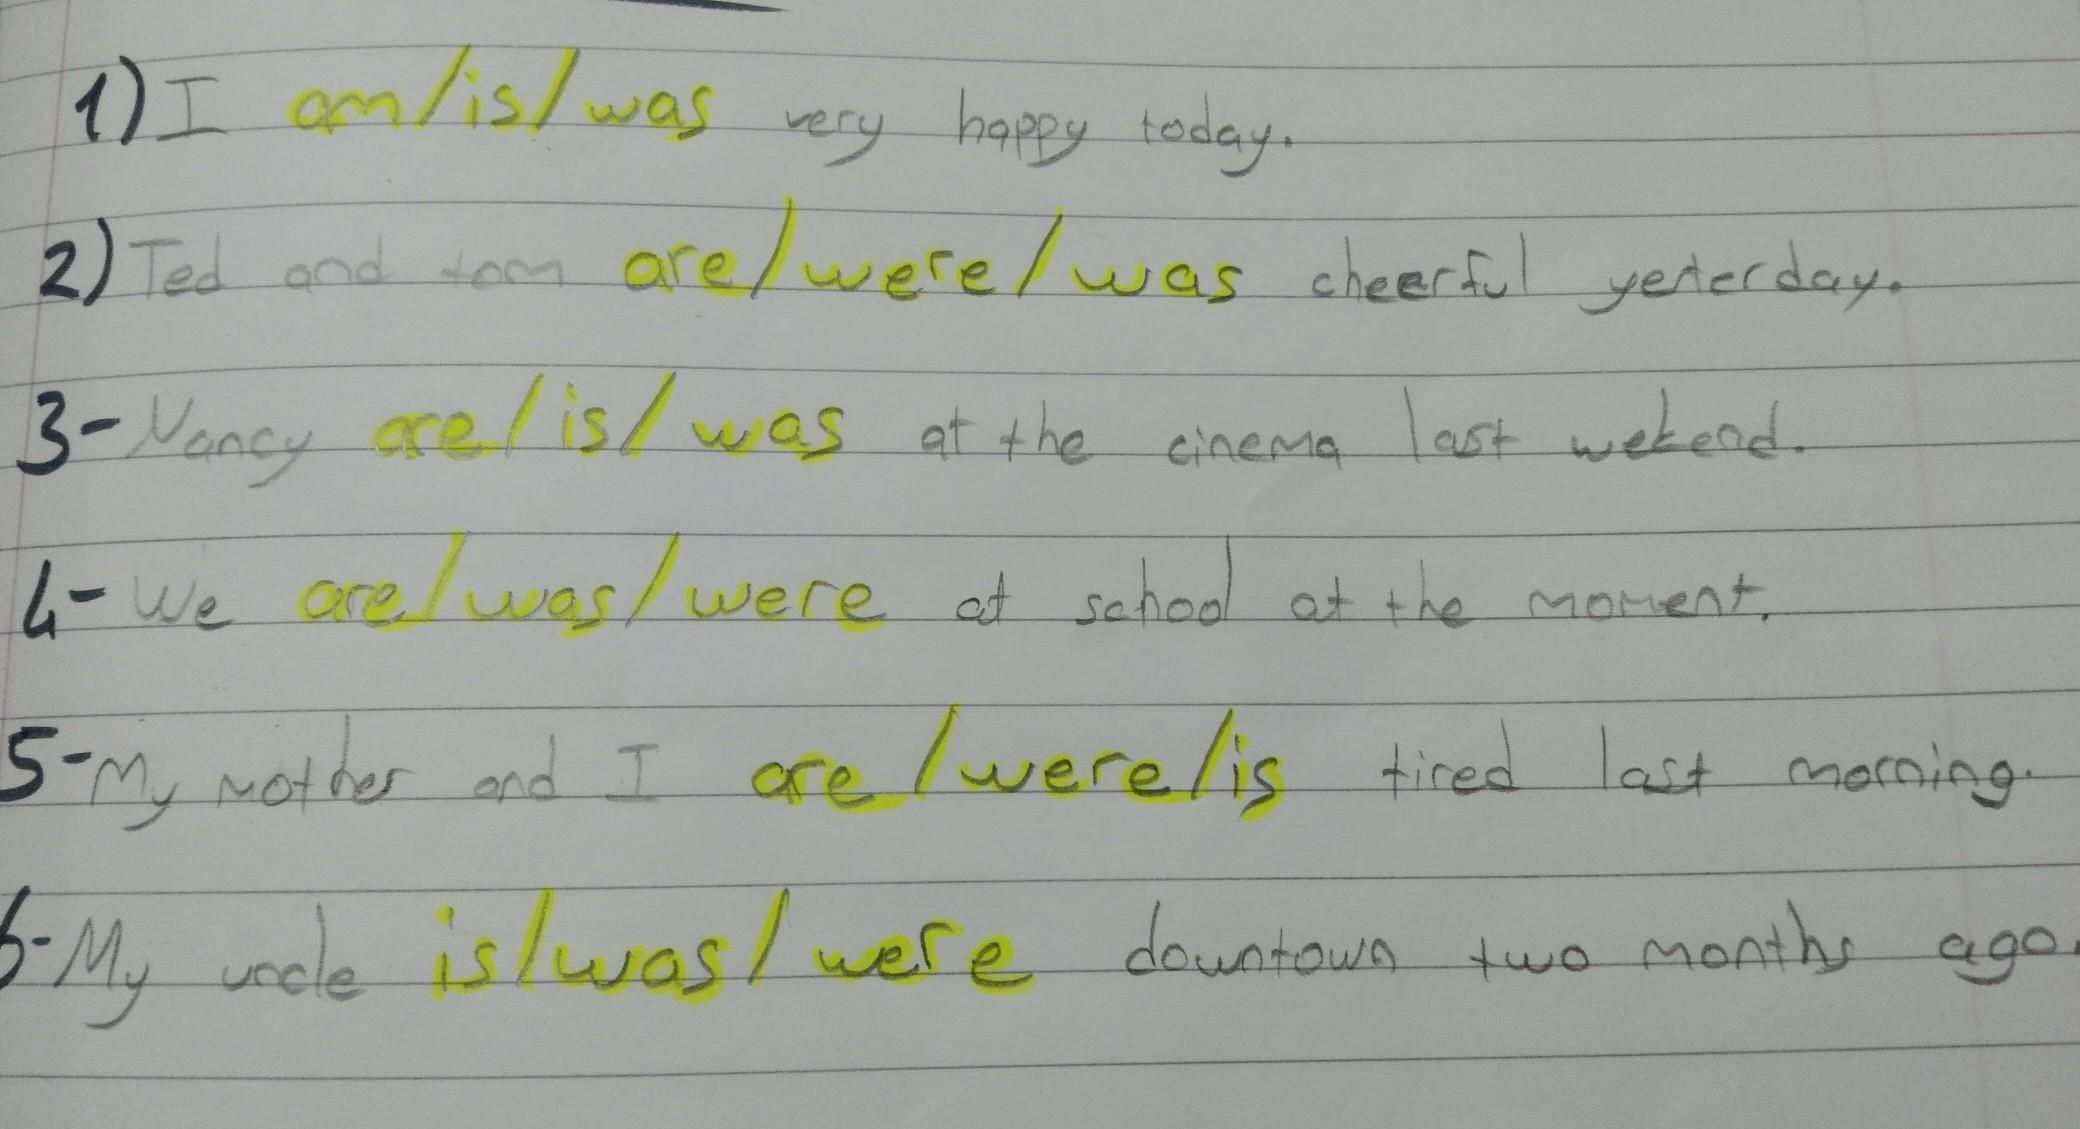 1) I am/is/was very happy today.
2) Ted and tom are/were/was cheerful yesterday.
3- Nancy are/is/was at the cinema last wekend.
4- We are/was/were at school at the moment.
5- My mother and I are/were/is tired last morning.
6- My uncle is/was/were downtown two months ago.